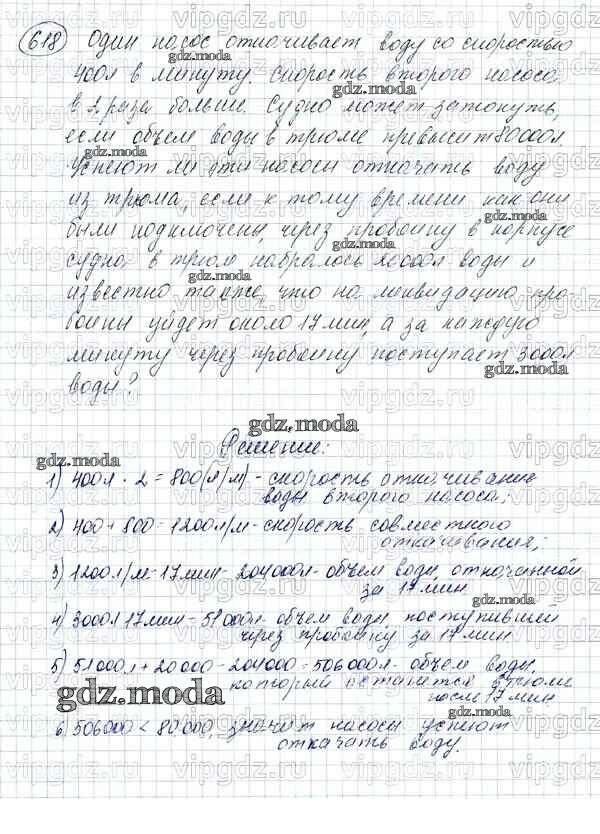 618 Один насос откачивает воду со скоростью
400л в минуту. Скорость второго насоса
в 2 раза больше. Судно может затонуть,
если объем воды в трюме превысит 80000л
Успеют ли эти насосы откачать воду
из трюма, если к тому времени как они
были подключены, через пробоину в корпусе
судна в трюм набралось 20000л воды и
известно также, что на ликвидацию про-
боины уйдет около 17 мин, а за каждую
минуту через пробоину поступает 3000л
воды?
Решение:
1) 400л · 2 = 800(л/м) - скорость откачивание
воды второго насоса;
2) 400 + 800 = 1200л/м - скорость совместного
откачивания;
3) 1200л/м - 17мин - 204000л - объем воды, откачанной
за 17 мин
4) 3000л 17мин = 51000л - объем воды, поступившей
через пробоину за 17 мин
5) 51000л + 20000 - 204000 = 506000л - объем воды,
который останется в трюме
после 17 мин.
6. 506000 < 80000, значит насосы успеют
откачать воду.
gdz.moda
gdz.moda
gdz.moda
gdz.moda
gdz.moda
gdz.moda
gdz.moda
gdz.moda
gdz.moda
gdz.moda
gdz.moda
gdz.moda
vipgdz.ru